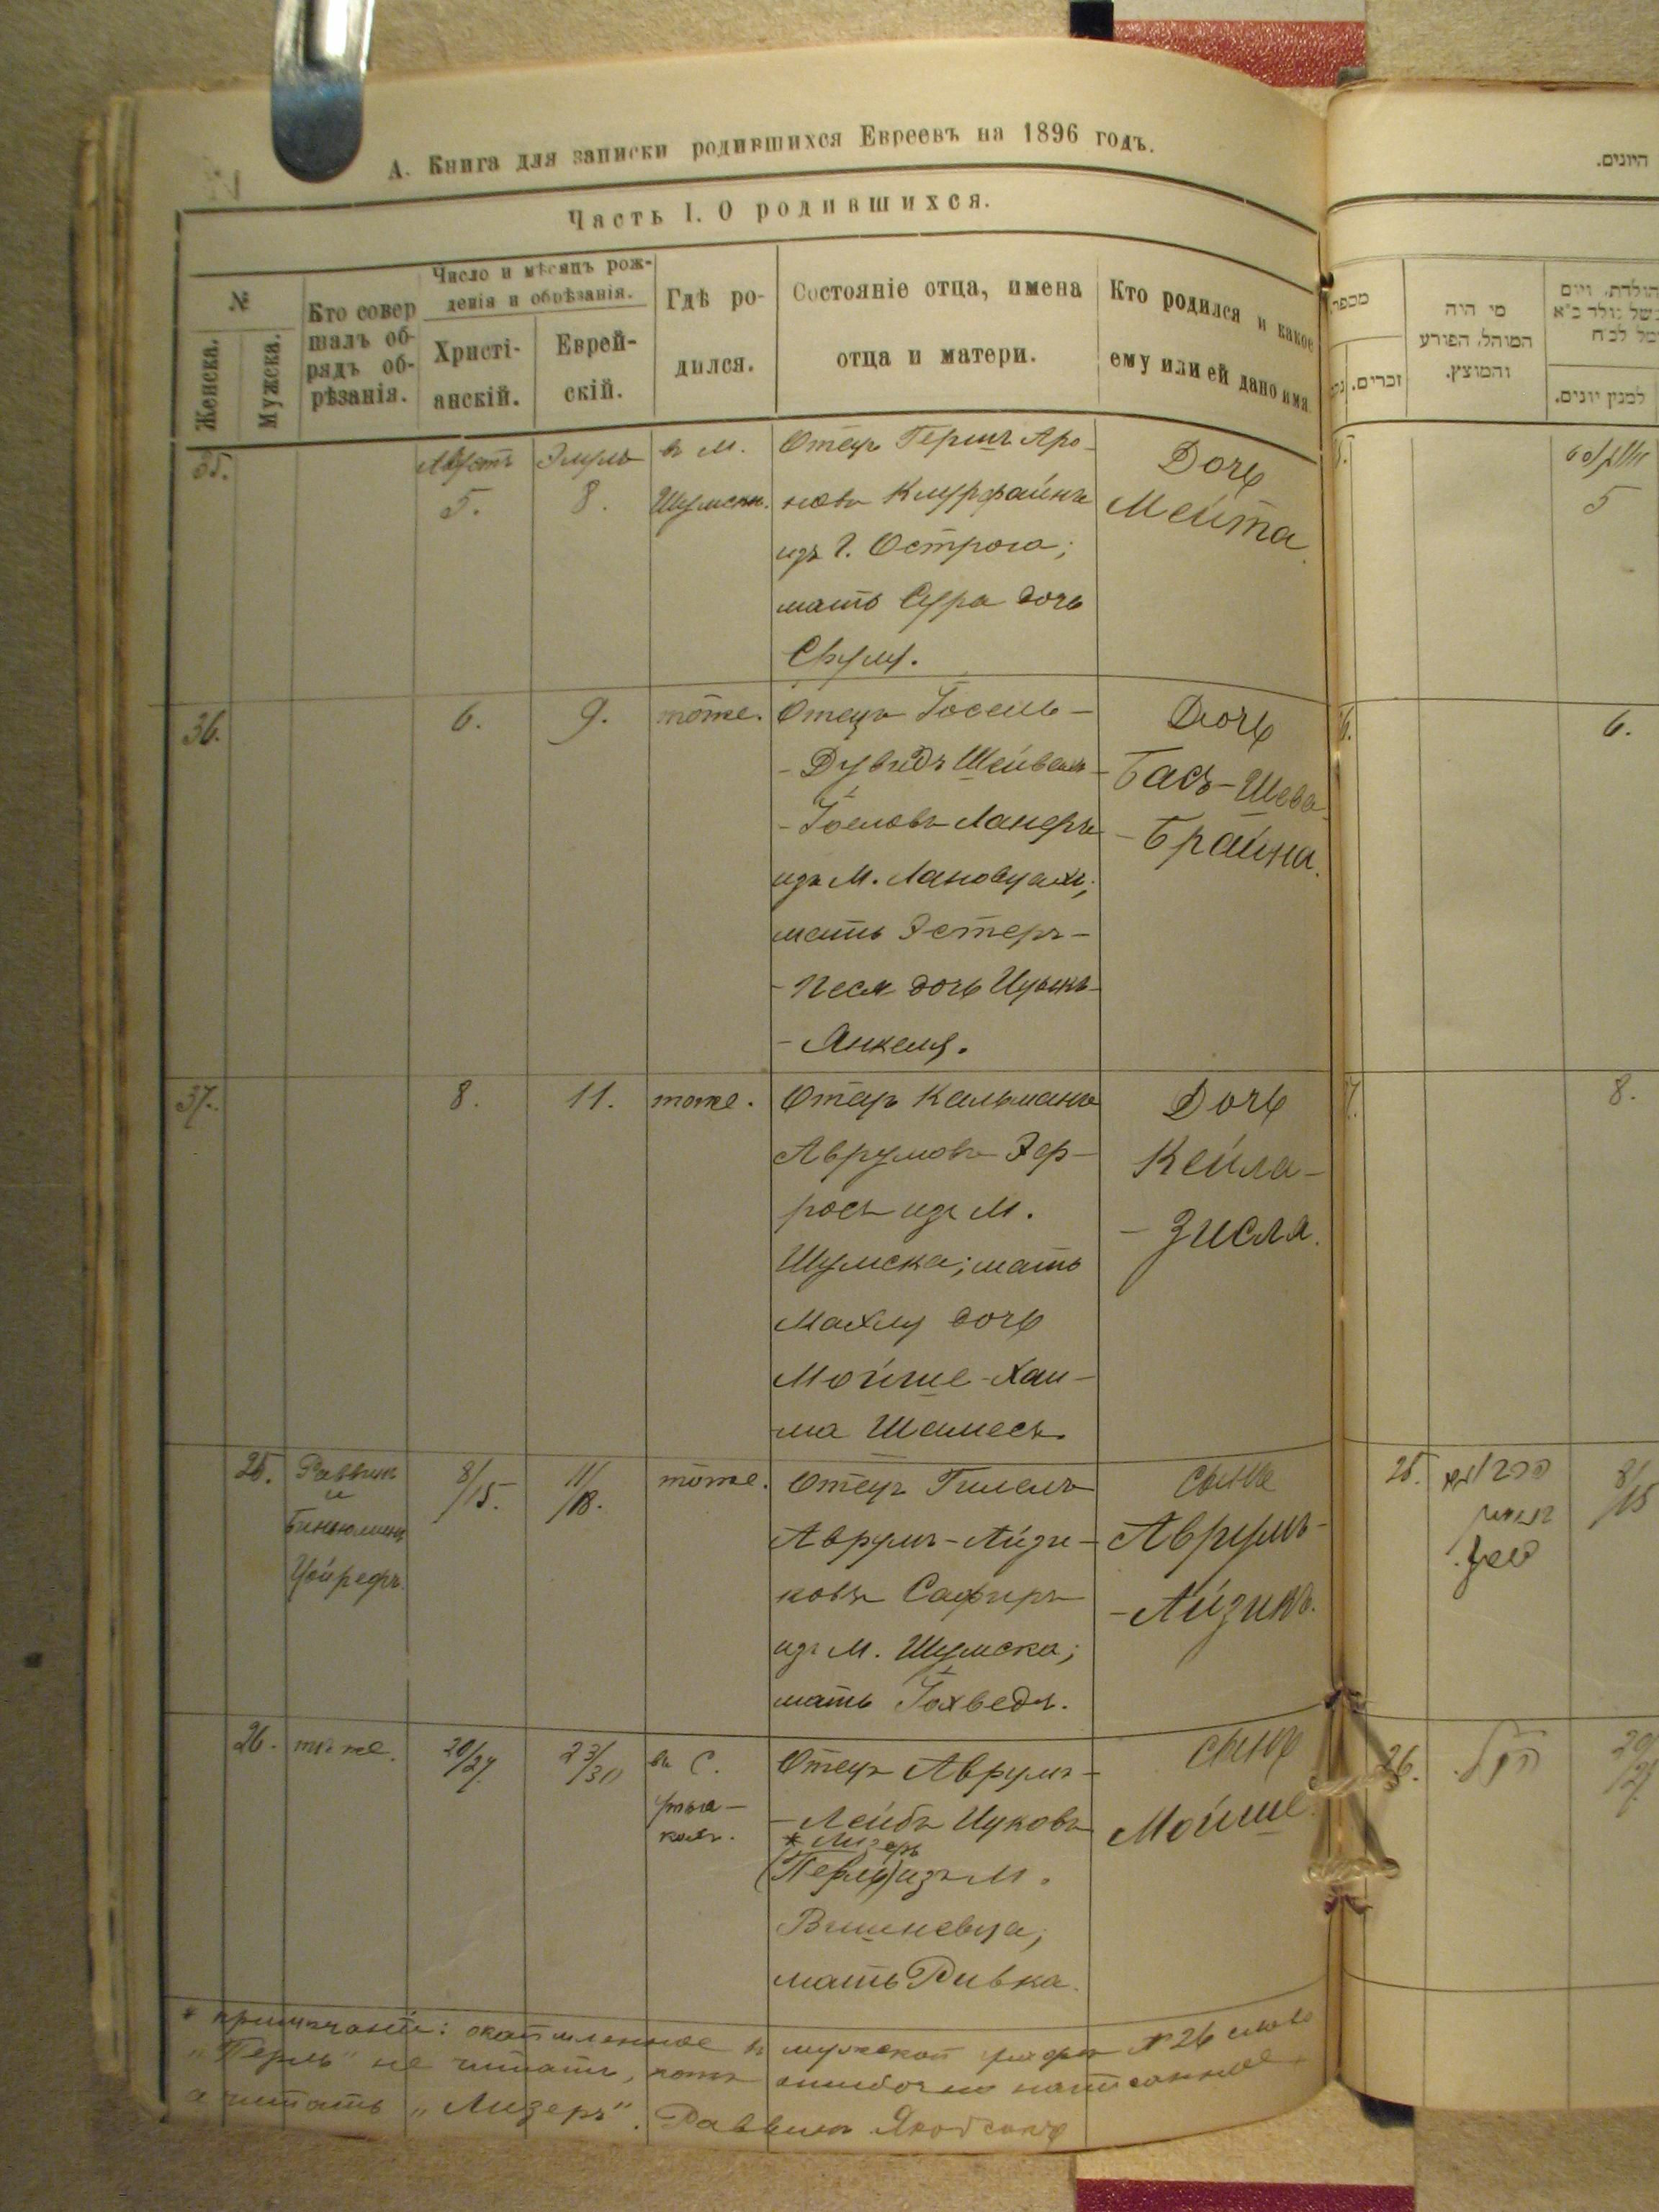 А. Книга для записки родившихся Евреевъ на 1896 годъ.
Часть I. О родившихся.
№
Женска.
Мужска.
Кто совер
шалъ об-
рядъ об-
рѣзанія.
Число и мѣсяцъ рож-
денія и обрѣзанія.
Христі-
анскій.
Еврей-
скій.
Гдѣ ро-
дился.
Состояніе отца, имена
отца и матери.
Кто родился и какое
ему или ей дано имя
35.
Августъ
5.
Элулъ
8.
въ м.
Шумскѣ.
Отецъ Гершъ Аро-
новъ
изъ г. Острога;
мать Сура дочь
Срулу.
Дочь
Мейта.
36.
6.
9.
тоже.
Отецъ Іосель-
-Дувидъ Шейвель-
-Іоеловъ Ланеръ
изъ м. Лановцахъ;
мать Эстеръ-
-Песя дочь Ицыкъ-
-Янкеля.
Дочь
Басъ-Шева
-Брайна.
37.
8.
11.
тоже.
Отецъ Кальманъ
Аврумовъ Зер-
росъ изъ м.
Шумска; мать
Махлу дочь
Мойше-Хаи-
ма Шамесъ.
Дочь
Кейла-
-Зисля.
25.
Раввинъ
и
Биньюминъ
Цойрефъ.
8/15.
11/18.
тоже.
Отецъ Гилелъ
Аврумъ-Айзи-
ковъ Сафиръ
изъ м. Шумска;
мать Іохведъ.
Сынъ
Аврумъ-
-Айзикъ.
26.
тоже.
20/27.
23/30
въ с.
Отецъ Аврумъ-
-Лейбъ Ицковъ
* Лизеръ
(Перль) изъ м.
Вишневца;
мать Ривка.
Сынъ
Мойше.
* примѣчаніе: въ мужской графѣ № 26 слово
„Перль" не читать, какъ ошибочно написанное,
а читать „Лизеръ". Раввинъ
היונים.
מספר
זכרים.
מי היה
המוהל, הפורע
והמוצץ.
הולדת, ויום
למנין יונים.
5
6.
8.
25.
8/15
26.
20/27